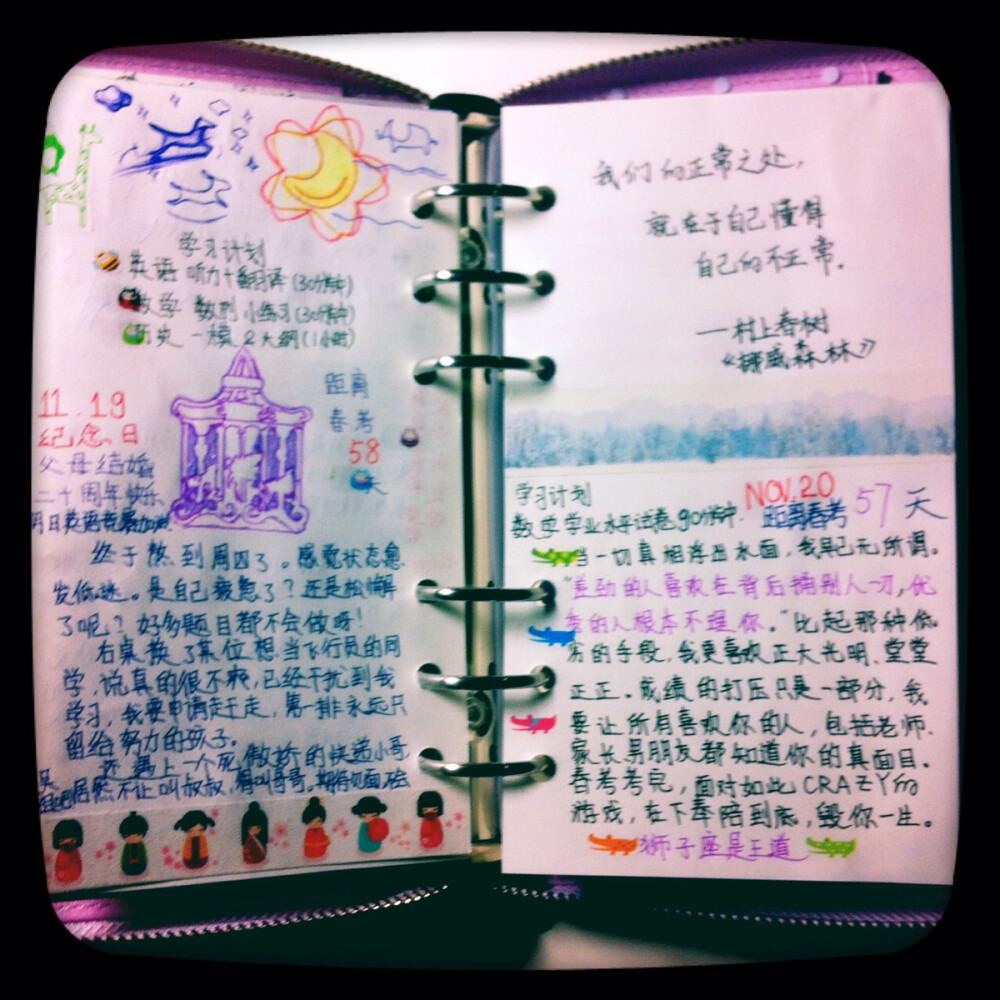 学习计划
英语 听力+翻译(30分钟)
数学 数列小练习(30分钟)
历史 一模2大纲(1小时)
11.19
纪念日
父母结婚
二十周年快乐
距离
春考
58
天
终于熬到周四了。感觉状态愈
发低迷。是自己疲惫了?还是松懈
了呢?好多题目都不会做呀!
右桌换了某位想当飞行员的同
学,说真的很不爽,已经干扰到我
学习,我要申请赶走,第一排永远只
留给努力的孩子。
还遇上一个死傲娇的快递小哥,
居然不让叫叔叔,得叫哥哥。
我们的正常之处,
就在于自己懂得
自己的不正常。
—村上春树
《挪威森林》
学习计划
NOV.20
数学学业水平试卷90分钟.
距离春考57天
当一切真相浮出水面,我早已无所谓。
的人喜欢在背后捅别人一刀,优
秀的人根本不理你。"比起那种低
劣的手段,我更喜欢正大光明、堂堂
正正。成绩的打压只是一部分,我
要让所有喜欢你的人,包括老师.
家长男朋友都知道你的真面目。
春考考完,面对如此CRAZY的
游戏,在下奉陪到底,毁你一生。
狮子座是王道